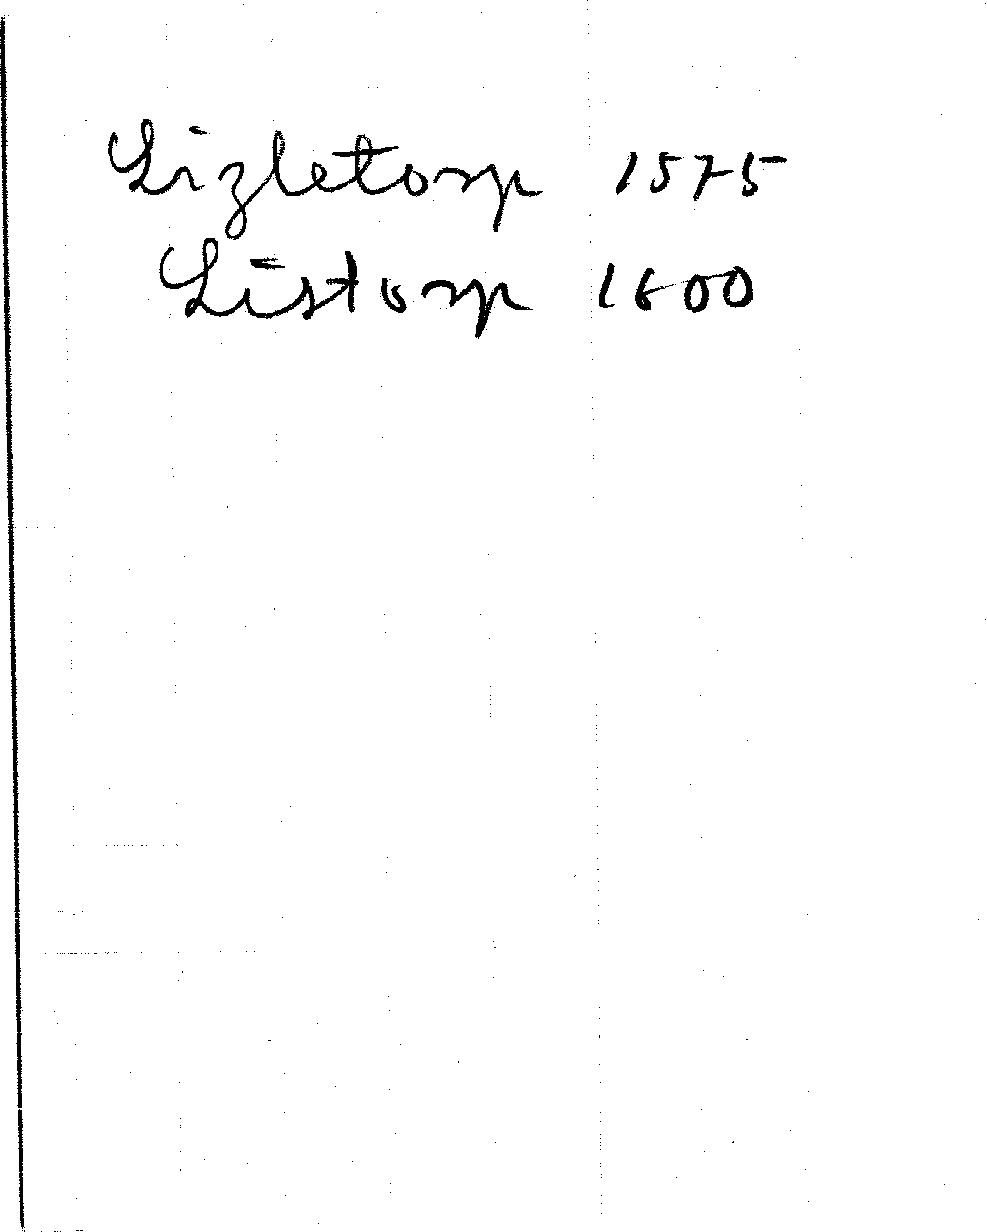 Lizletorp 1575
Listorp 1600